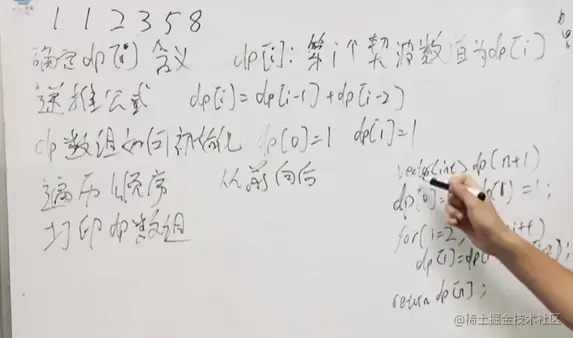 1 1 2 3 5 8
确定dp[i]含义 dp[i]:第i个斐波数值为dp[i]
递推公式 dp[i]=dp[i-1]+dp[i-2]
dp数组如何初始化 dp[0]=1 dp[1]=1
遍历顺序 从前向后
打印dp数组
vector<int> dp(n+1)
dp[0]= dp[1]=1;
for(i=2; i++)
dp[i]=dp[i-2];
return dp[n];
@稀土掘金技术社区